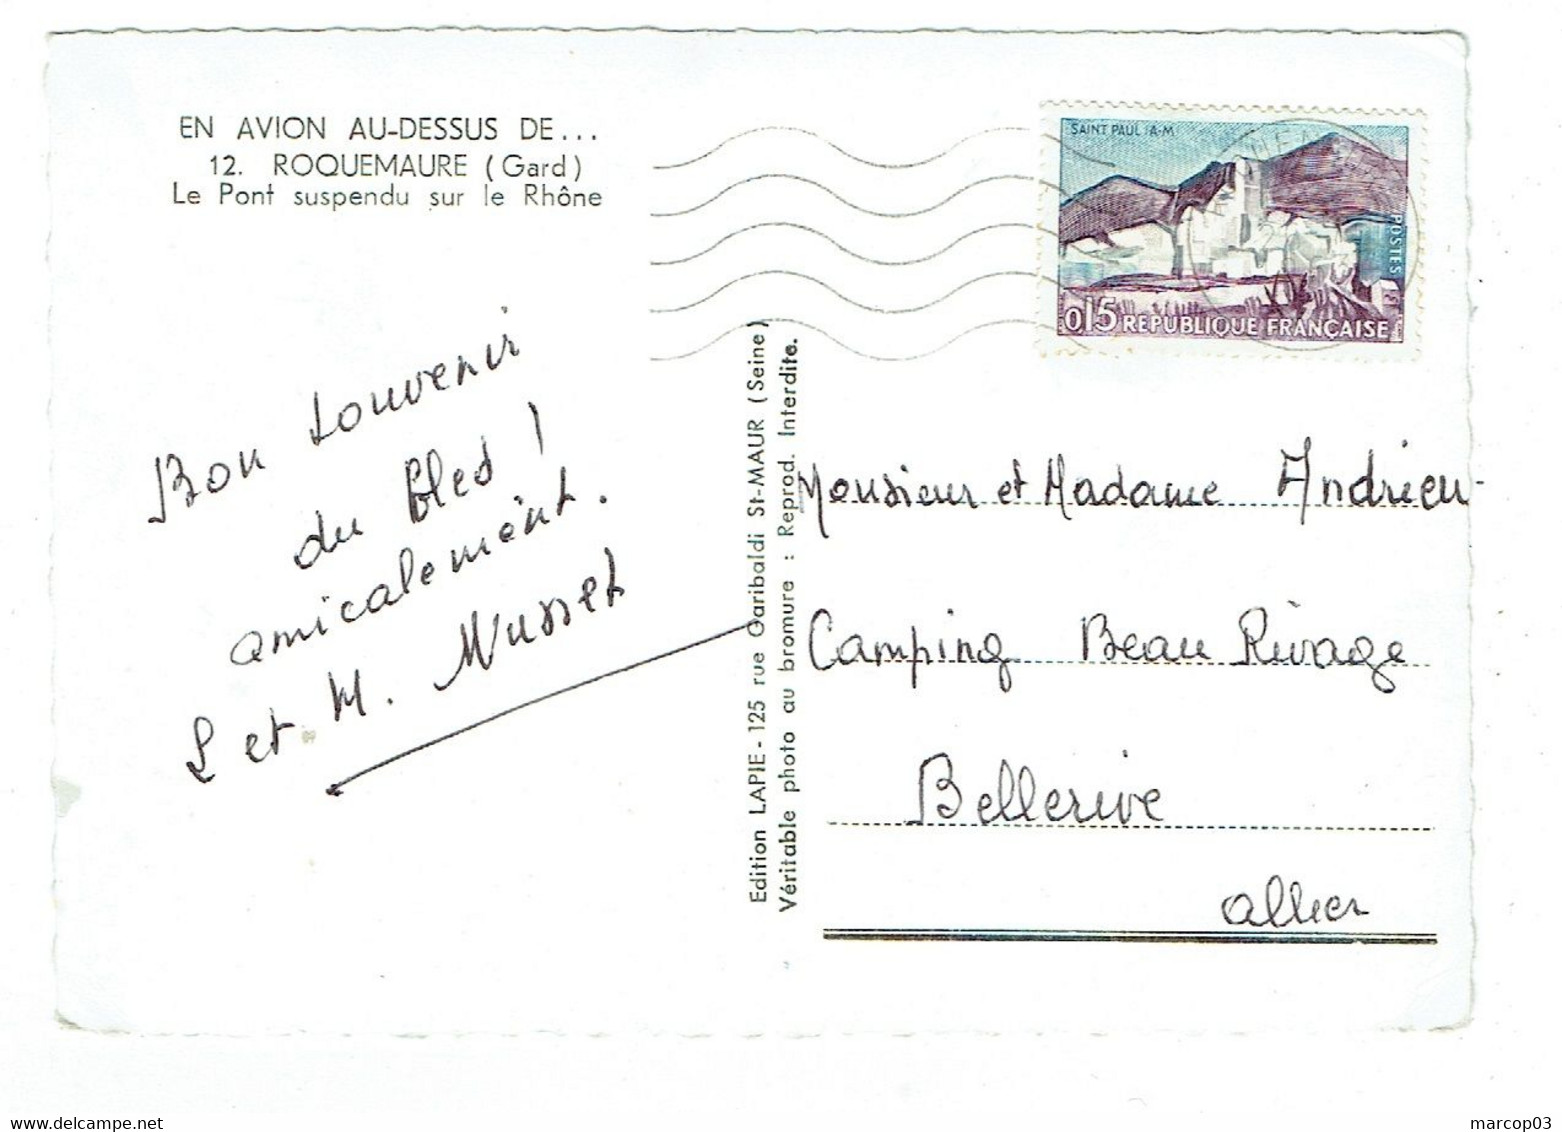 EN AVION AU-DESSUS DE...
12. ROQUEMAURE (Gard)
Le Pont suspendu sur le Rhône
Bon souvenir
du bled !
amicalement.
et M. Musset
Edition LAPIE - 125 rue Garibaldi St-MAUR (Seine)
Véritable photo au bromure : Reprod. Interdite.
SAINT PAUL (A-M)
POSTES
0,15 REPUBLIQUE FRANÇAISE
Monsieur et Madame Andrieu
Camping Beau Rivage
Bellerive
Allier
marcop03